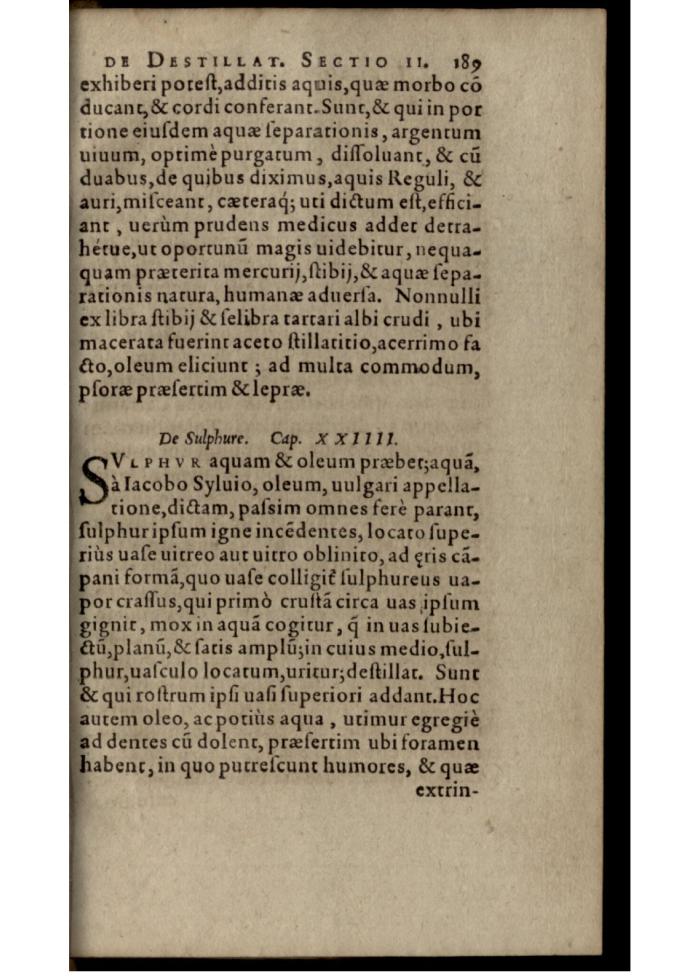 DE DESTILLAT. SECTIO II. 189
exhiberi potest,additis aquis,quæ morbo cō
ducant,& cordi conferant.Sunt,& qui in por
tione eiusdem aquæ separationis, argentum
uiuum, optimè purgatum, dissoluant, & cū
duabus,de quibus diximus,aquis Reguli, &
auri,misceant, cæteraq́; uti dictum est,effici-
ant, uerùm prudens medicus addet detra-
hétue,ut oportunū magis uidebitur, nequa-
quam præterita mercurij,stibij,& aquæ sepa-
rationis natura, humanæ aduersa. Nonnulli
ex libra stibij & selibra tartari albi crudi, ubi
macerata fuerint aceto stillatitio,acerrimo fa
cto,oleum eliciunt; ad multa commodum,
psoræ præsertim & lepræ.
De Sulphure. Cap. XXIIII.
SVLPHVR aquam & oleum præbet;aquā,
à Iacobo Syluio, oleum, uulgari appella-
tione,dictam, passim omnes ferè parant,
sulphur ipsum igne incēdentes, locato supe-
riùs uase uitreo aut uitro oblinito, ad ęris cā-
pani formā,quo uase colligit̃ sulphureus ua-
por crassus,qui primò crustā circa uas ipsum
gignit, mox in aquā cogitur, q̄ in uas subie-
ctū,planū,& satis amplū;in cuius medio,sul-
phur,uasculo locatum,uritur;destillat. Sunt
& qui rostrum ipsi uasi superiori addant.Hoc
autem oleo, ac potiùs aqua, utimur egregiè
ad dentes cū dolent, præsertim ubi foramen
habent, in quo putrescunt humores, & quæ
extrin-